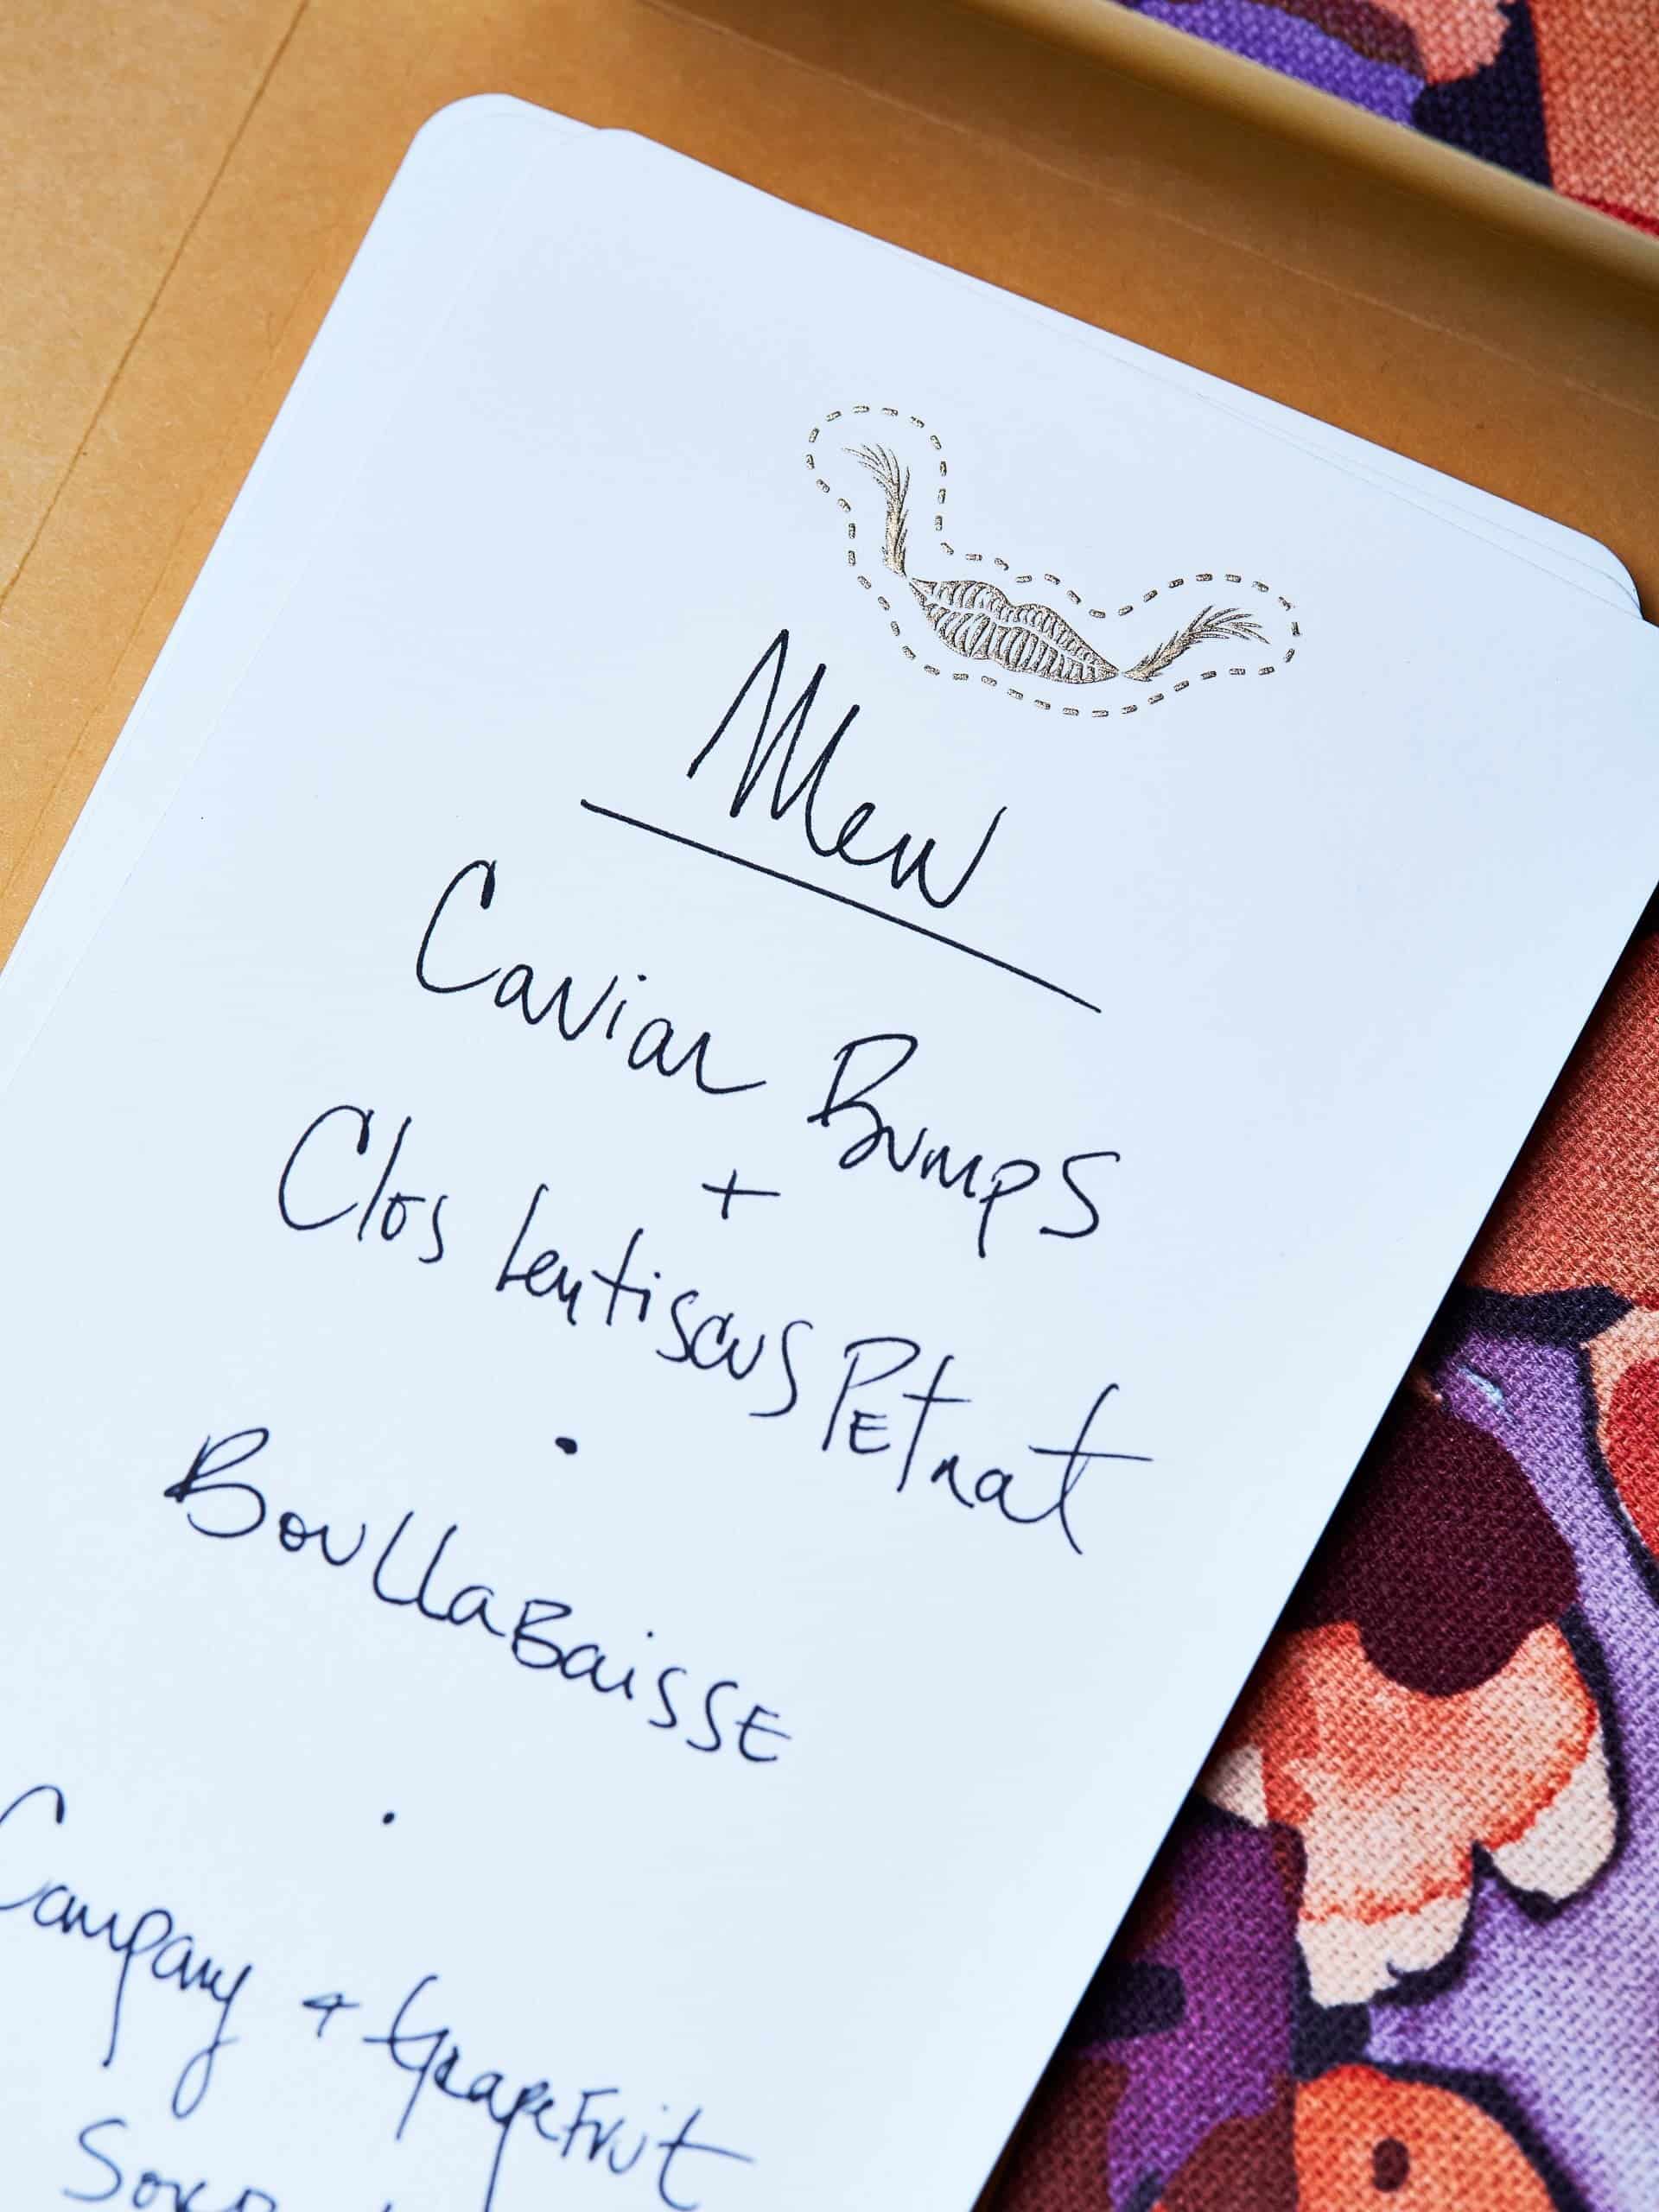 Menu
Caviar Bumps
+
Clos Lentiscus PEtnat
•
BoullaBaisse
•
Campany + GrapeFruit